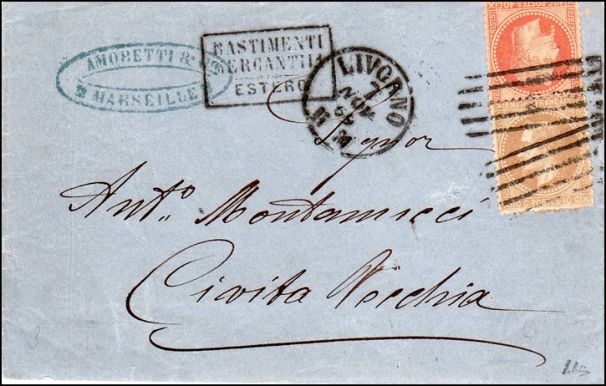 AMORETTI &
MARSEILLE
BASTIMENTI
MERCANTILI
ESTERO
LIVORNO
7
NOV
Signor
Ant.o Montanucci
Civita Vecchia